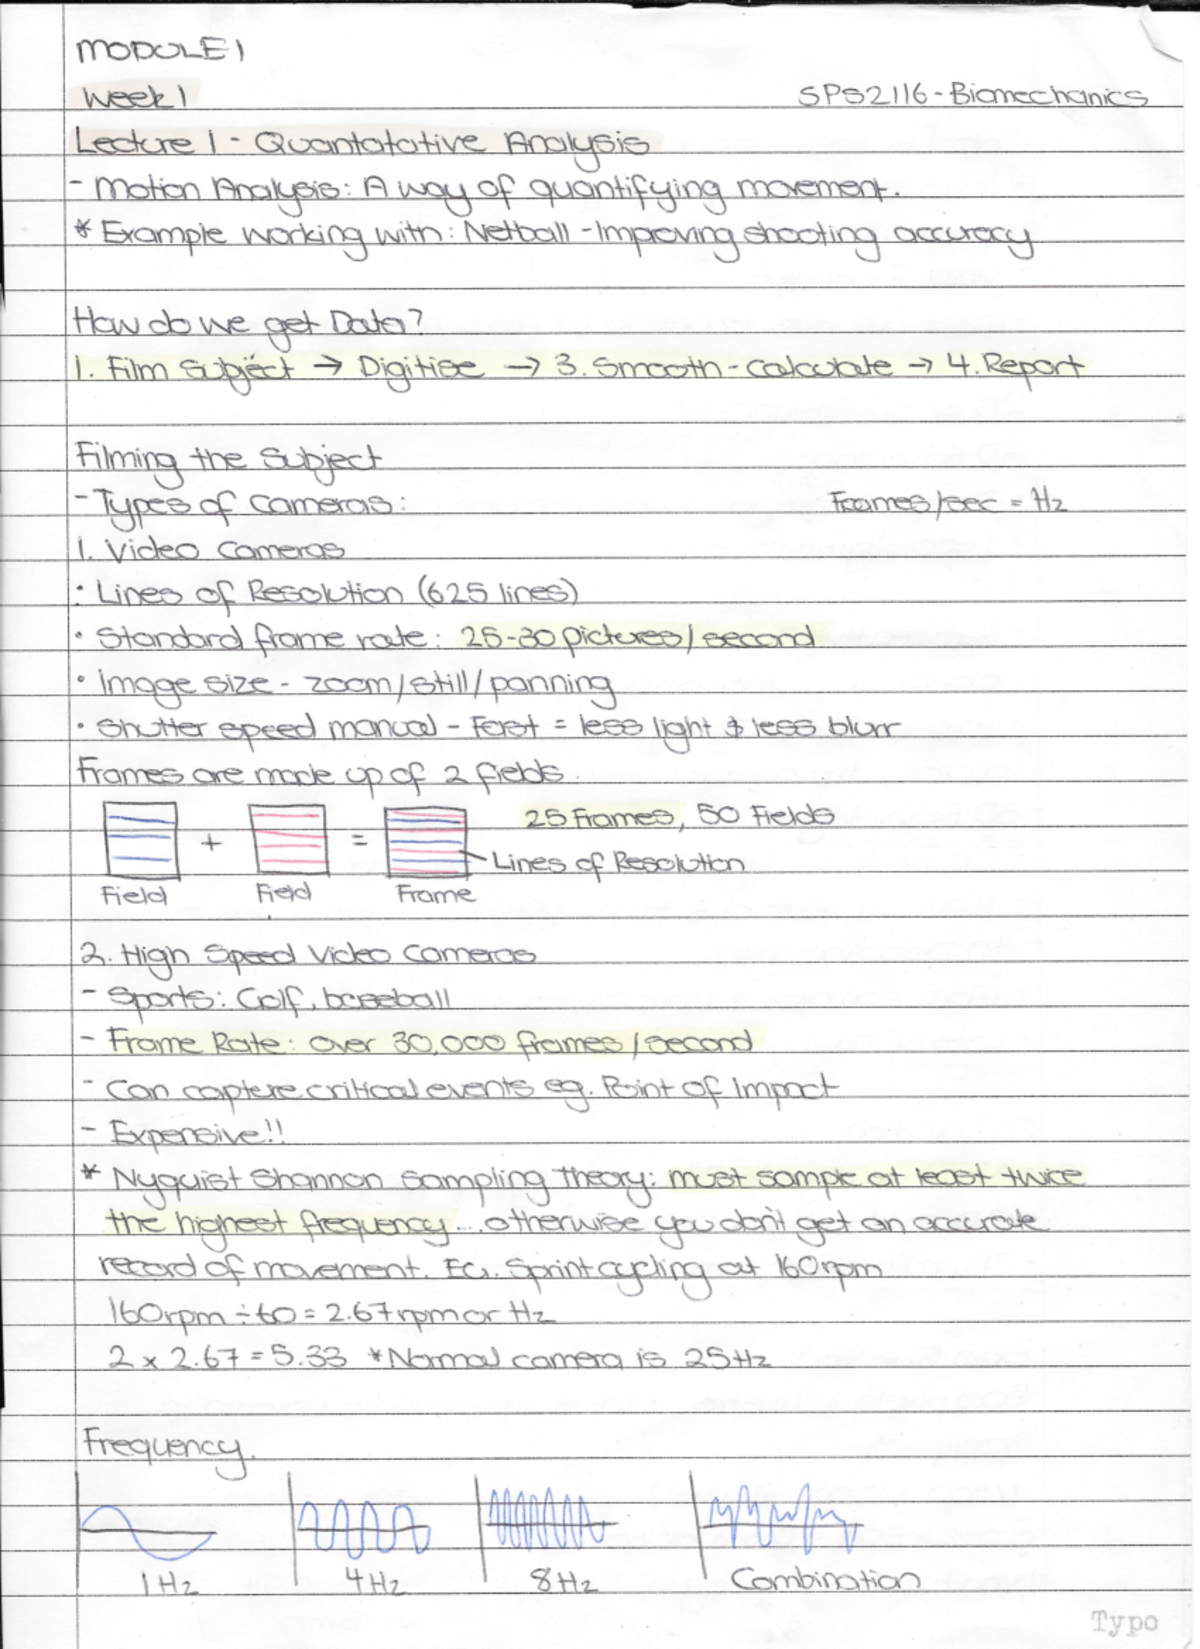 MODULE 1
Week 1
SPS2116 - Biomechanics
Lecture 1 - Quantatative Analysis
- Motion Analysis: A way of quantifying movement.
* Example working with: Netball - Improving shooting accuracy
How do we get Data?
1. Film Subject → Digitise → 3. Smooth - calculate → 4. Report
Filming the Subject
- Types of Cameras:
Frames/sec = Hz
1. Video Cameras
: Lines of Resolution (625 lines)
• Standard frame rate: 25-30 pictures/second
• Image size - zoom/still/panning
• Shutter speed manual - Fast = less light & less blurr
Frames are made up of 2 fields.
25 Frames, 50 Fields
+ =
Lines of Resolution
Field Field Frame
2. High Speed Video Cameras
- Sports: Golf, baseball
- Frame Rate: over 30,000 frames/second
- Can capture critical events eg. Point of Impact
- Expensive!!
* Nyquist Shannon Sampling Theory: must sample at least twice
the highest frequency... otherwise you don't get an accurate
record of movement. EG. Sprint cycling at 160rpm
160rpm ÷ 60 = 2.67rpm or Hz
2 x 2.67 = 5.33 *Normal camera is 25Hz
Frequency.
1Hz 4Hz 8Hz Combination
Typo